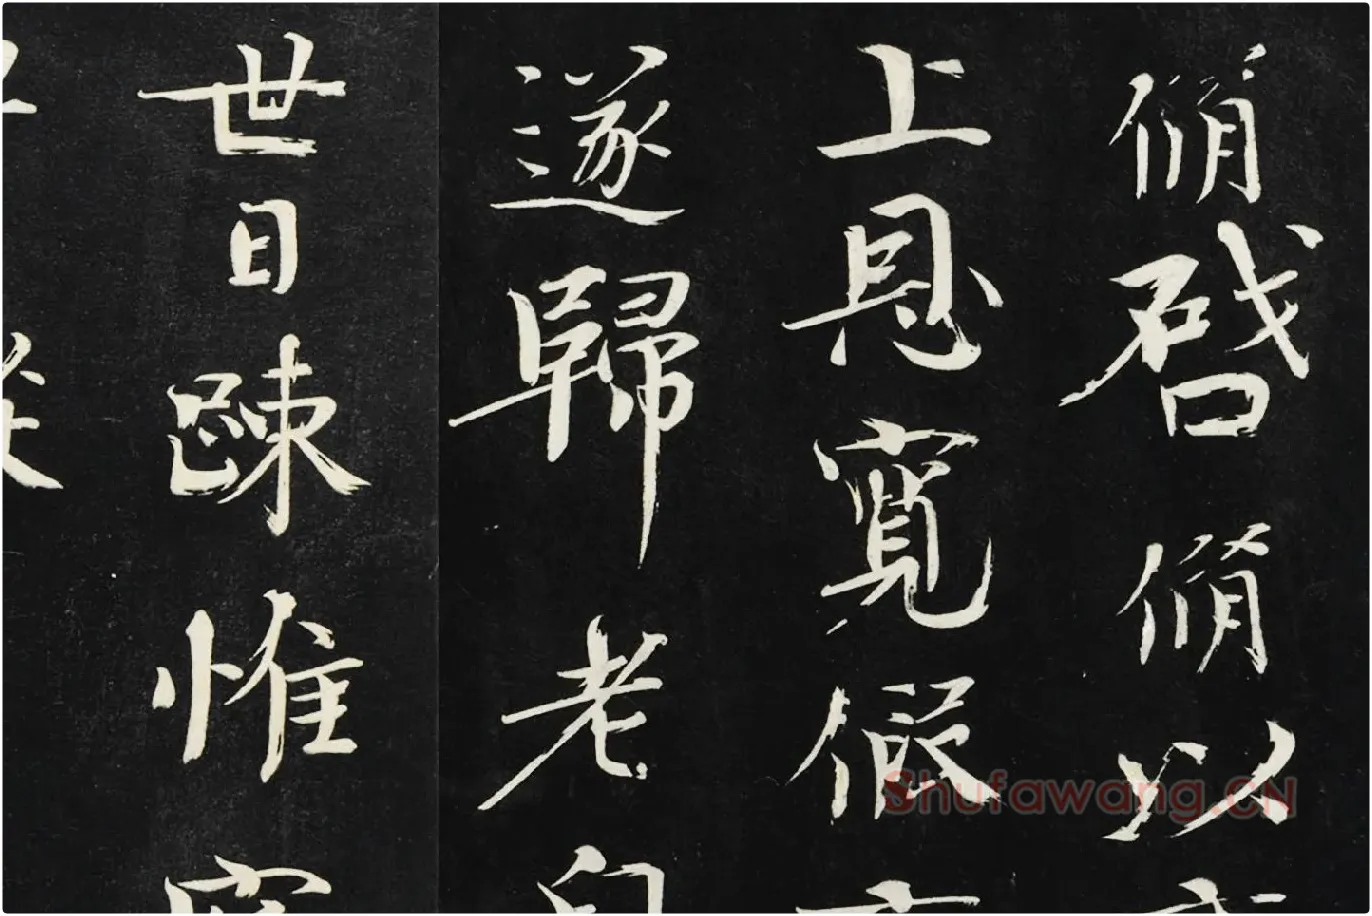 脩啓脩以
上恩寬假
遂歸老
世日疎惟
Shufawang.CN